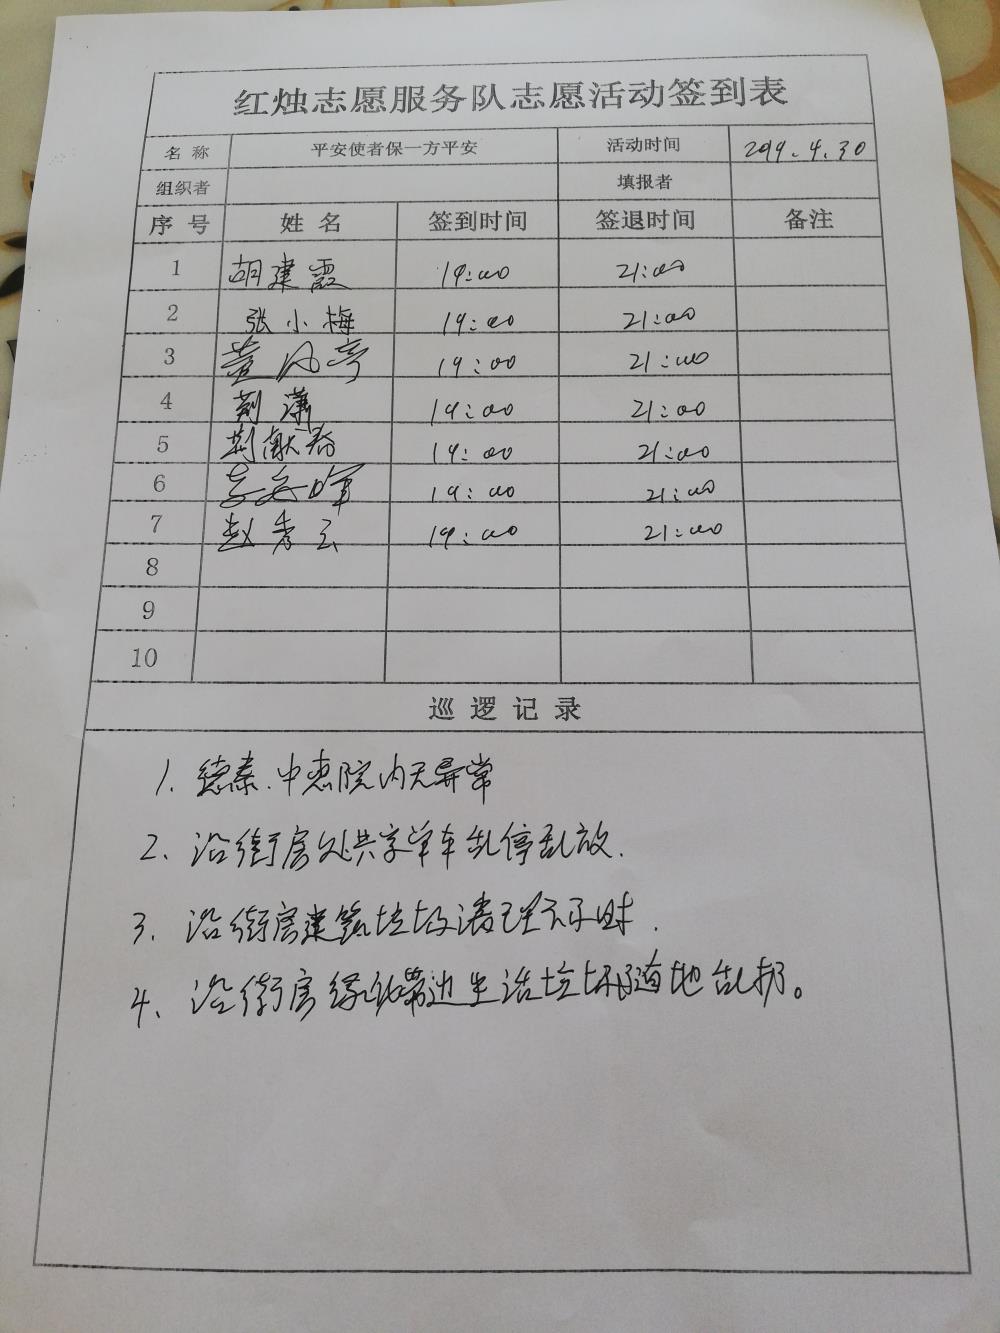 红烛志愿服务队志愿活动签到表
名 称 平安使者保一方平安 活动时间 2019.4.30
组织者 填报者
序 号 姓 名 签到时间 签退时间 备注
1 胡建霞 19:00 21:00
2 张小梅 19:00 21:00
3 19:00 21:00
4 荆潇 19:00 21:00
5 荆献春 19:00 21:00
6 19:00 21:00
7 赵秀云 19:00 21:00
8
9
10
巡逻记录
1、德泰、中惠院内无异常
2、沿街房处共享单车乱停乱放.
3、沿街房建筑垃圾清理不及时.
4、沿街房绿化带边生活垃圾随地乱扔。